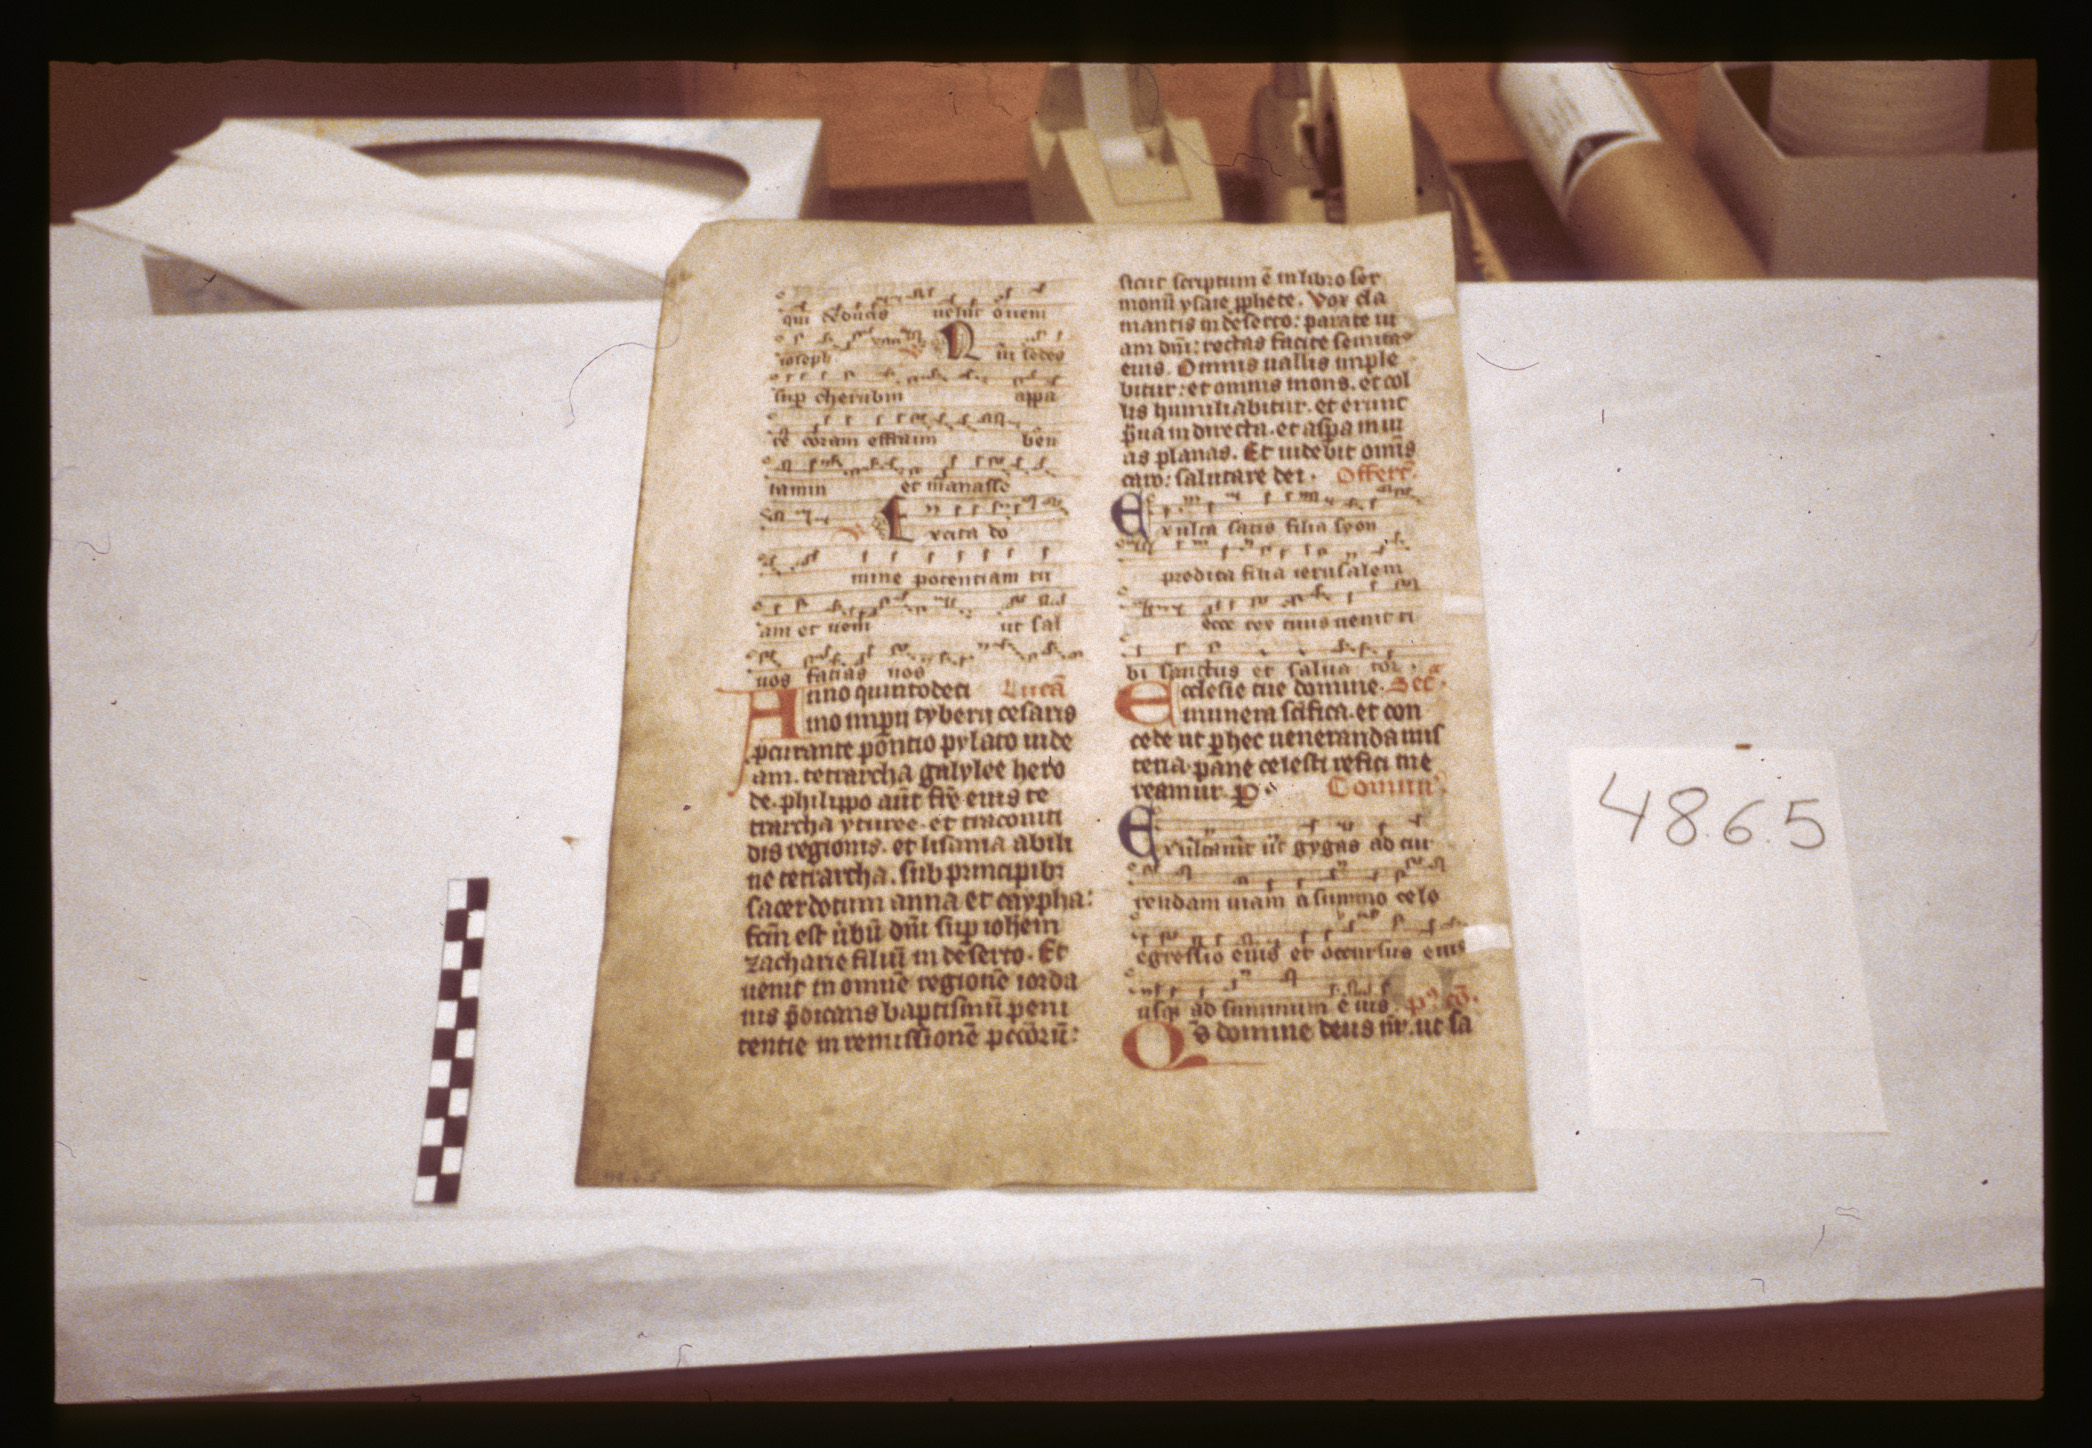 qui deducis uelut ouem
ioseph N
sup cherubin appa
re coram effraim ben
iamin et manasse
E xcita do
mine potentiam tu
am et ueni ut sal
uos facias nos
Anno quintodeci Lucā
mo imperii tyberii cesaris
pcurante pontio pylato iude
am. tetrarcha galylee hero
de. philippo aūt fr̄e eius te
trarcha yturee. et traconiti
dis regionis. et lisania abili
ne tetrarcha. sub principibz
sacerdotum anna et caypha:
fc̄m est ūbū dn̄i sup iohem
zacharie filiū in deserto. Et
uenit in omnē regionē iorda
nis p̄dicans baptismū peni
tentie in remissionē pccōrū:
sicut scriptum ē in libro ser
monū ysaie pphete. Vox cla
mantis in deserto: parate ui
am dn̄i: rectas facite semitas
eius. Omnis uallis imple
bitur: et omnis mons. et col
lis humiliabitur. et erunt
p̄ua in directa. et aspa in ui
as planas. Et uidebit omīs
caro: salutare dei. Offert̄.
Exulta satis filia syon
predica filia ierusalem
ecce rex tuus uenit ti
bi sanctus et salua tor.
Ecclesie tue domine. Sec̄.
munera sc̄ifica. et con
cede ut p hec ueneranda mis
teria. pane celesti refici me
reamur. p
Comun
Exultauit ut gygas ad cur
rendam uiam a summo celo
egressio eius et occursus eius
usq ad summum e ius p9 cō.
Qs domine deus nr̄. ut sa
48.6.5